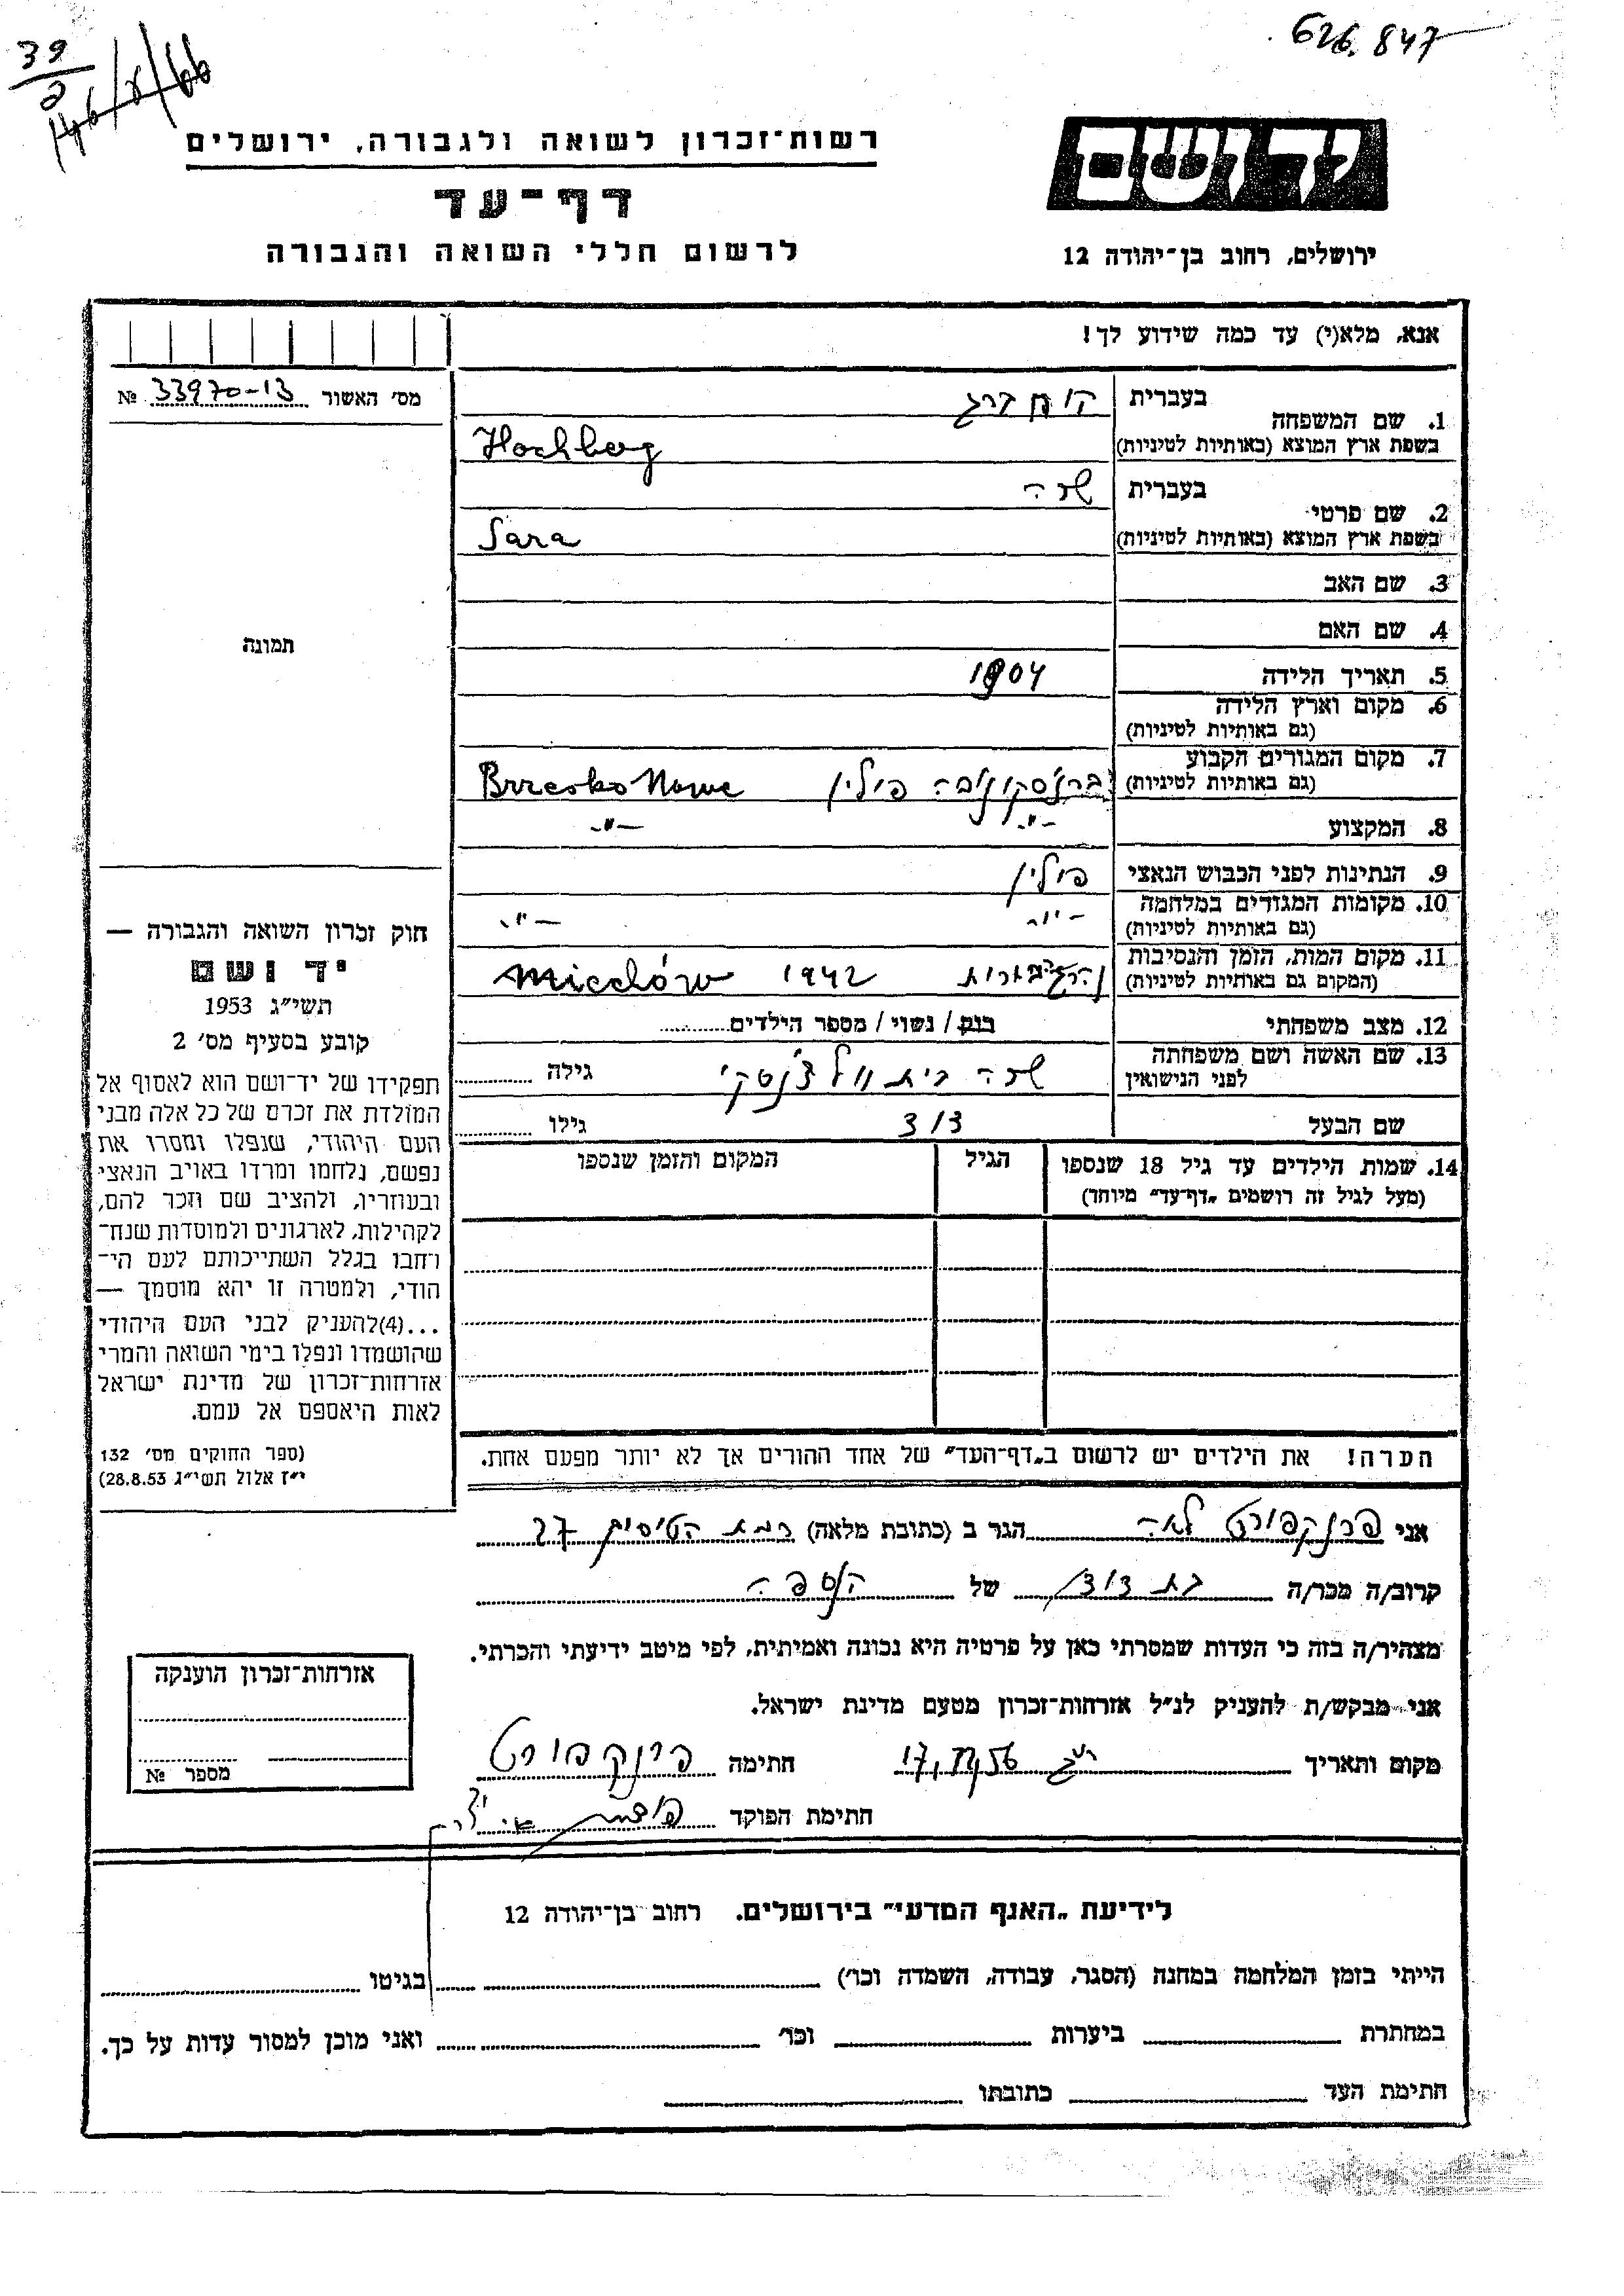 626.847
39
2
רשות־זכרון לשואה ולגבורה, ירושלים
דף־עד
לרשום חללי השואה והגבורה
יד ושם
ירושלים, רחוב בן־יהודה 12
אנא, מלא(י) עד כמה שידוע לך!
מס׳ האשור № 33970-13
1. שם המשפחה
בעברית
בשפת ארץ המוצא (באותיות לטיניות) Hochberg
2. שם פרטי
בעברית שרה
בשפת ארץ המוצא (באותיות לטיניות) Sara
3. שם האב
4. שם האם
5. תאריך הלידה 1904
6. מקום וארץ הלידה
(גם באותיות לטיניות)
7. מקום המגורים הקבוע
(גם באותיות לטיניות) פולין Brzesko Nowe
8. המקצוע -"- -"-
9. הנתינות לפני הכבוש הנאצי פולין
10. מקומות המגורים במלחמה
(גם באותיות לטיניות) -"- -"-
11. מקום המות, הזמן והנסיבות
(המקום גם באותיות לטיניות) 1942 Miechów
12. מצב משפחתי רוק / נשוי / מספר הילדים
13. שם האשה ושם משפחתה
לפני הנישואין שרה בית גילה
שם הבעל דוד גילו
14. שמות הילדים עד גיל 18 שנספו
(מעל לגיל זה רושמים „דף־עד” מיוחד)
הגיל
המקום והזמן שנספו
הערה! את הילדים יש לרשום ב„דף־העד” של אחד ההורים אך לא יותר מפעם אחת.
תמונה
חוק זכרון השואה והגבורה —
יד ושם
תשי״ג 1953
קובע בסעיף מס׳ 2
תפקידו של יד־ושם הוא לאסוף אל
המולדת את זכרם של כל אלה מבני
העם היהודי, שנפלו ומסרו את
נפשם, נלחמו ומרדו באויב הנאצי
ובעוזריו, ולהציב שם וזכר להם,
לקהילות, לארגונים ולמוסדות שנח־
רחבו בגלל השתייכותם לעם הי־
הודי, ולמטרה זו יהא מוסמך —
...(4)להעניק לבני העם היהודי
שהושמדו ונפלו בימי השואה והמרי
אזרחות־זכרון של מדינת ישראל
לאות היאספם אל עמם.
(ספר החוקים מס׳ 132
י״ז אלול תשי״ג 28.8.53)
אני פרנקפורט לאה הגר ב (כתובת מלאה) רמת הטייסים 27
קרוב/ה מכר/ה בת דוד של הנספה
מצהיר/ה בזה כי העדות שמסרתי כאן על פרטיה היא נכונה ואמיתית, לפי מיטב ידיעתי והכרתי.
אני מבקש/ת להעניק לנ״ל אזרחות־זכרון מטעם מדינת ישראל.
מקום ותאריך חתימה פרנקפורט
חתימת הפוקד
אזרחות־זכרון הוענקה
מספר №
לידיעת „האגף המדעי” בירושלים. רחוב בן־יהודה 12
הייתי בזמן המלחמה במחנה (הסגר, עבודה, השמדה וכו׳) בגיטו
במחתרת ביערות וכו׳ ואני מוכן למסור עדות על כך.
חתימת העד כתובתו